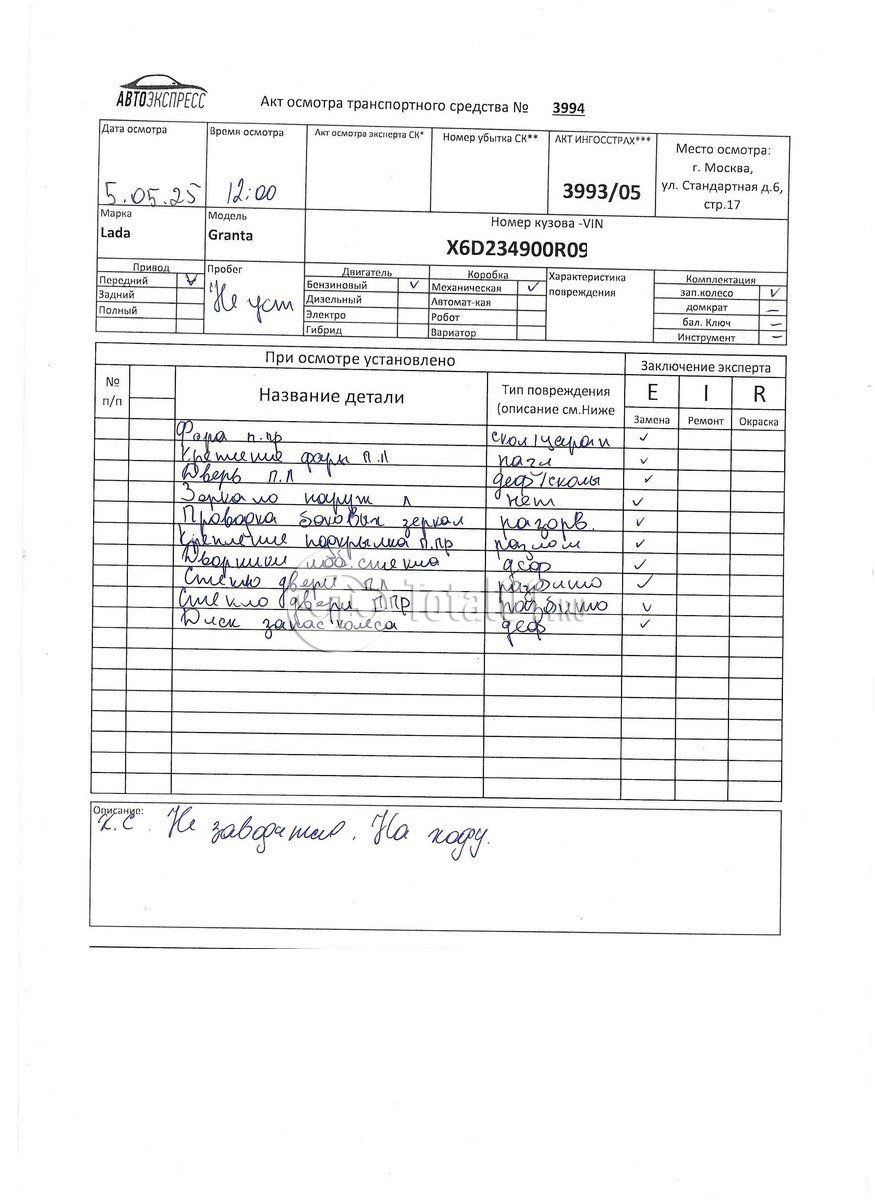 АВТОЭКСПРЕСС
Акт осмотра транспортного средства № 3994
Дата осмотра Время осмотра Акт осмотра эксперта СК* Номер убытка СК** АКТ ИНГОССТРАХ*** Место осмотра:
г. Москва,
ул. Стандартная д.6,
стр.17
5.05.25 12:00 3993/05
Марка Модель Номер кузова -VIN
Lada Granta X6D234900R09
Привод Пробег Двигатель Коробка Характеристика повреждения Комплектация
Передний V Не уст Бензиновый V Механическая V зап.колесо V
Задний Дизельный Автомат-кая домкрат –
Полный Электро Робот бал. Ключ –
Гибрид Вариатор Инструмент –
При осмотре установлено Заключение эксперта
№ п/п Название детали Тип повреждения (описание см.Ниже E I R
Замена Ремонт Окраска
Фара п.пр скол/царап ✓
Крепление фары п.л ✓
Дверь п.л деф/сколы ✓
Зеркало наруж л нет ✓
Проводка боковых зеркал разорв. ✓
Крепление подкрылка п.пр разлом ✓
Дворники лоб.стекла деф ✓
Стекло двери пл разбито ✓
Стекло двери ппр разбито ✓
Диск запас колеса деф ✓
Total01.RU
Описание:
К.С. Не заводится. На ходу.